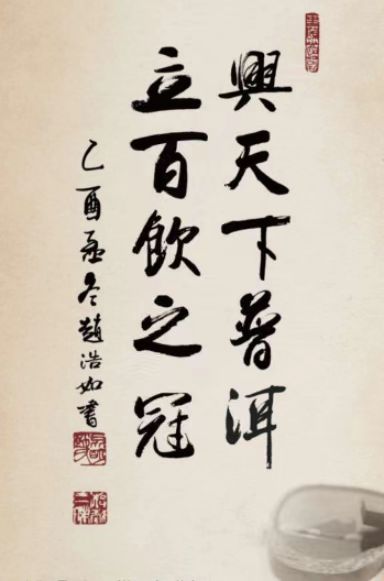 興天下普洱
立百飲之冠
乙酉孟冬趙浩如書